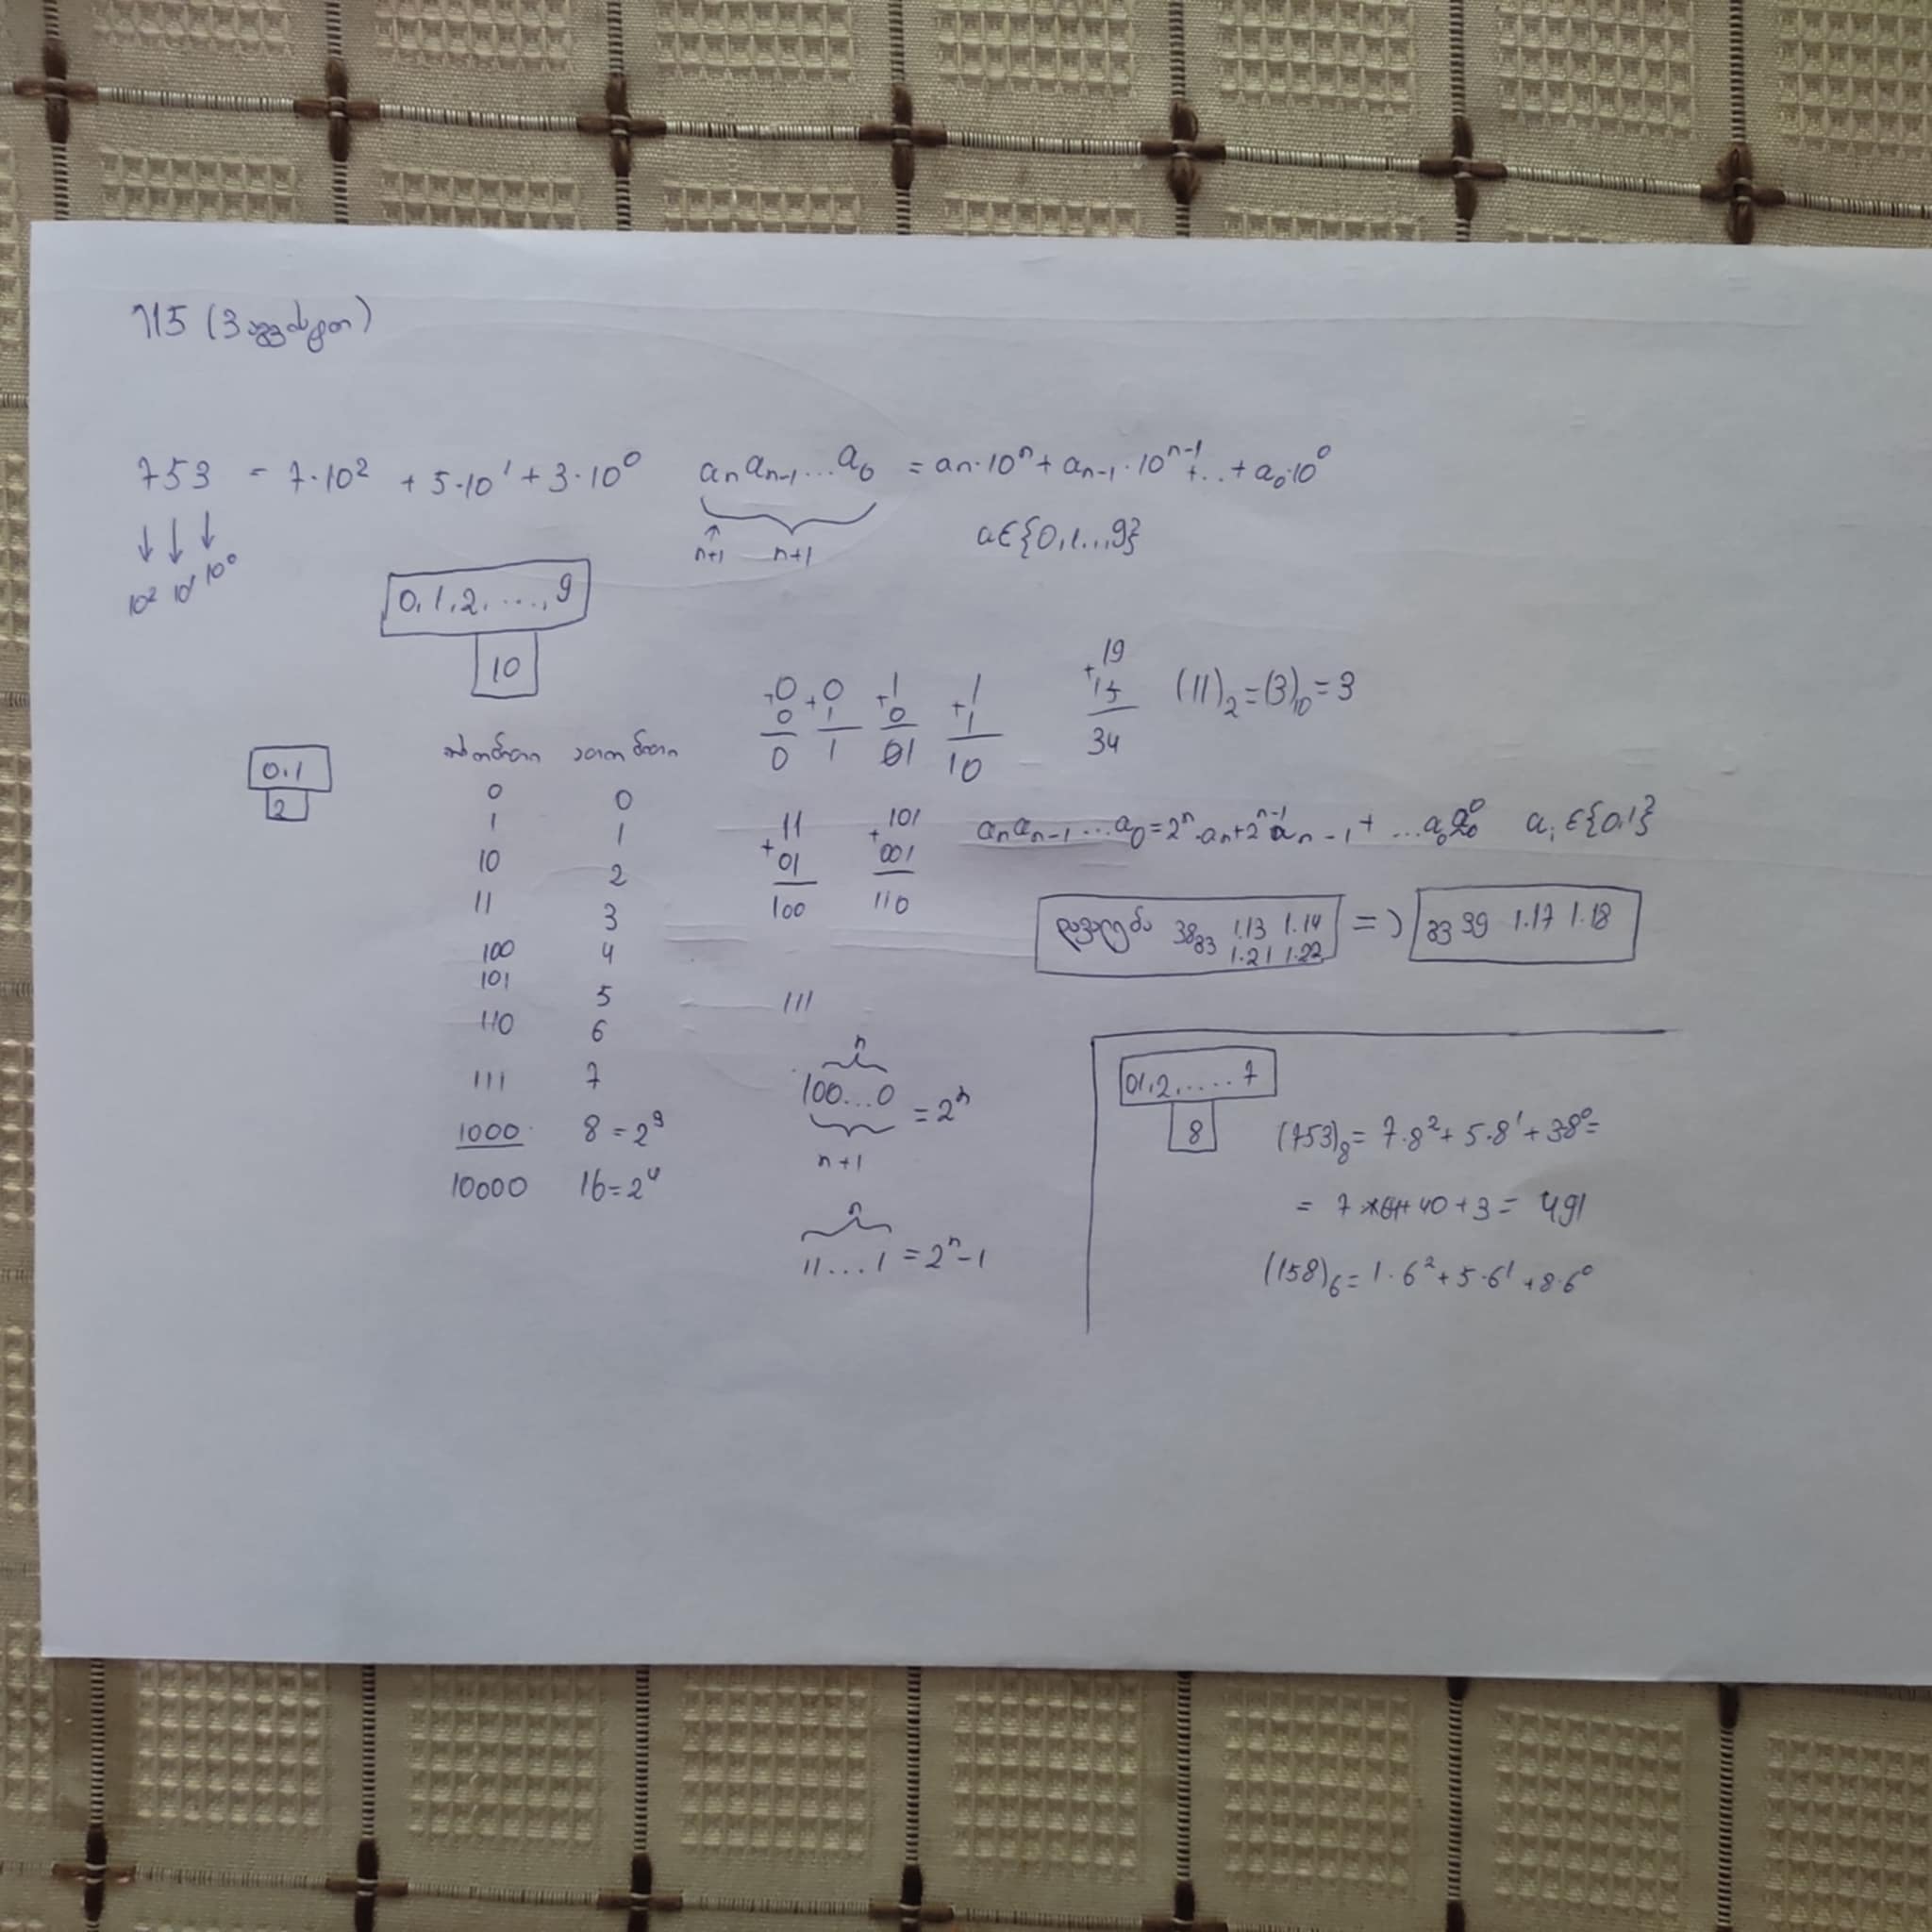 115 (3 აგვისტო)
753 = 7·10² + 5·10¹ + 3·10⁰
aₙaₙ₋₁...a₀ = aₙ·10ⁿ + aₙ₋₁·10ⁿ⁻¹ + .. + a₀·10⁰
↓ ↓ ↓
10² 10¹ 10⁰
n+1 n+1
a∈{0,1...,9}
0,1,2,...,9
10
0,1
2
ორობითი ათობითი
0 0
1 1
10 2
11 3
100 4
101 5
110 6
111 7
1000 8=2³
10000 16=2⁴
+0 +0 +1 +1
0 1 0 1
0 1 01 10
+19
15
34
(11)₂=(3)₁₀=3
+11 +101
01 001
100 110
aₙaₙ₋₁...a₀=2ⁿ·aₙ+2ⁿ⁻¹aₙ₋₁+ ...a₀2⁰ aᵢ∈{0,1}
დავალება 38გვ 1.13 1.14
1.21 1.22
=> გვ 39 1.17 1.18
111
n
100...0 = 2ⁿ
n+1
n
11...1 = 2ⁿ-1
0,1,2,....7
8
(753)₈= 7·8²+ 5·8¹+ 3·8⁰=
= 7*64+40+3= 491
(158)₆= 1·6²+5·6¹+8·6⁰